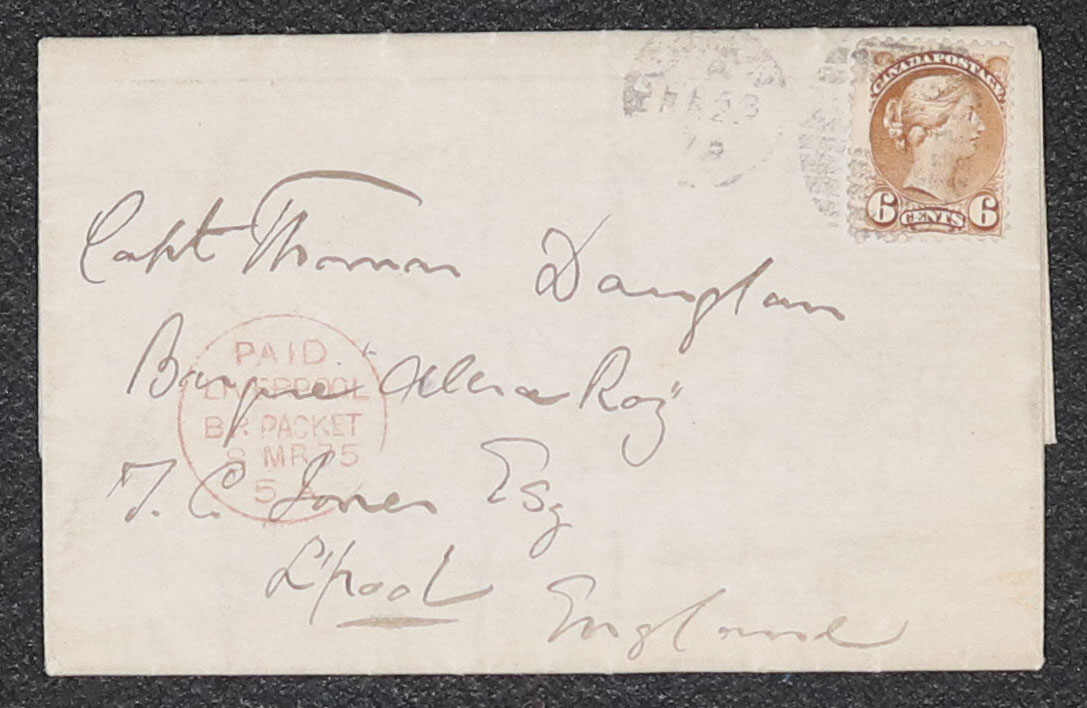 CANADA POSTAGE
6 CENTS 6
Capt Thomas Douglas
Barque
T. C. Jones Esq
L'pool
England
PAID
LIVERPOOL
BR PACKET
8 MR 75
5 A